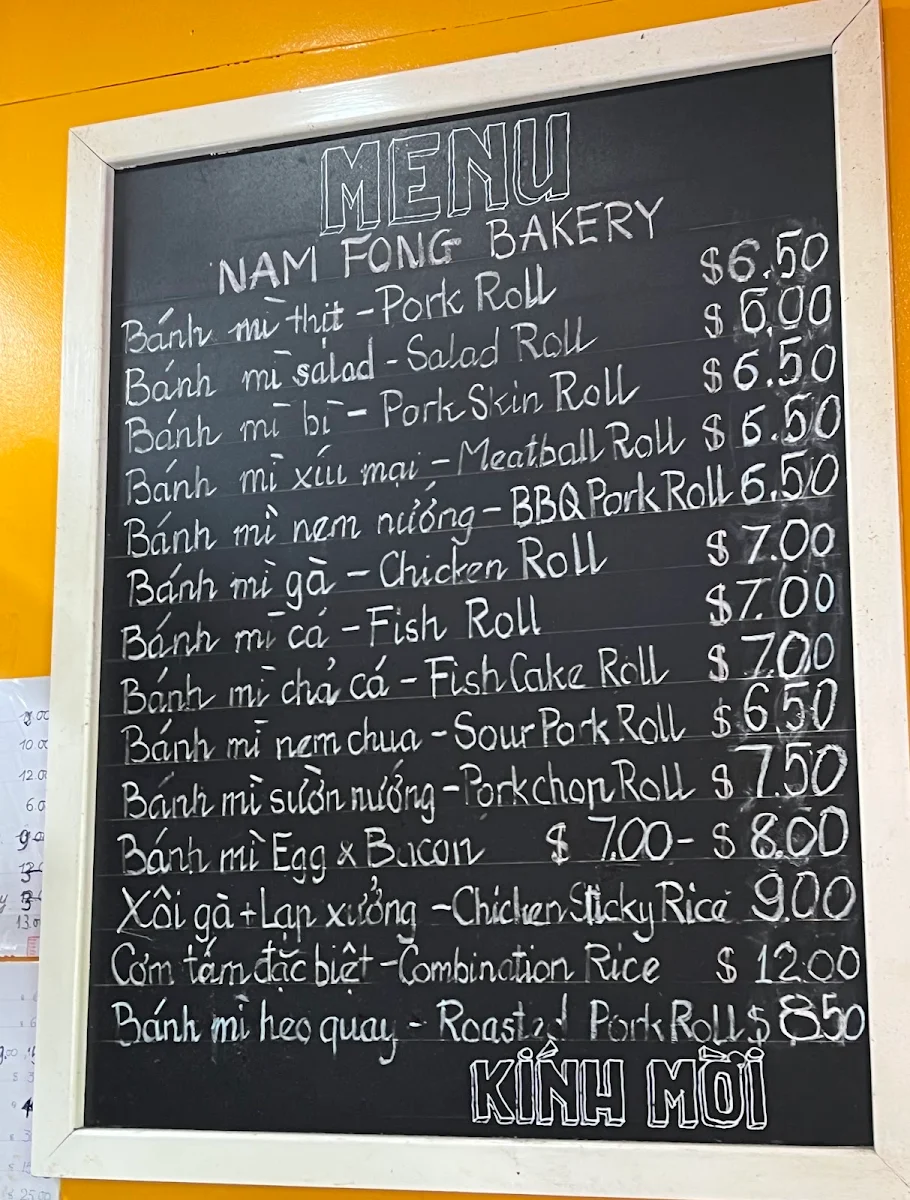 MENU
NAM FONG BAKERY
Bánh mì thịt - Pork Roll $6.50
Bánh mì salad - Salad Roll $6.00
Bánh mì bì - Pork Skin Roll $6.50
Bánh mì xíu mại - Meatball Roll $6.50
Bánh mì nem nướng - BBQ Pork Roll 6.50
Bánh mì gà - Chicken Roll $7.00
Bánh mì cá - Fish Roll $7.00
Bánh mì chả cá - Fish Cake Roll $7.00
Bánh mì nem chua - Sour Pork Roll $6.50
Bánh mì sườn nướng - Porkchop Roll $7.50
Bánh mì Egg x Bacon $7.00 - $8.00
Xôi gà + Lạp xưởng - Chicken Sticky Rice 9.00
Cơm tấm đặc biệt - Combination Rice $12.00
Bánh mì heo quay - Roasted Pork Roll $8.50
KÍNH MỜI
10.00
12.00
25.00